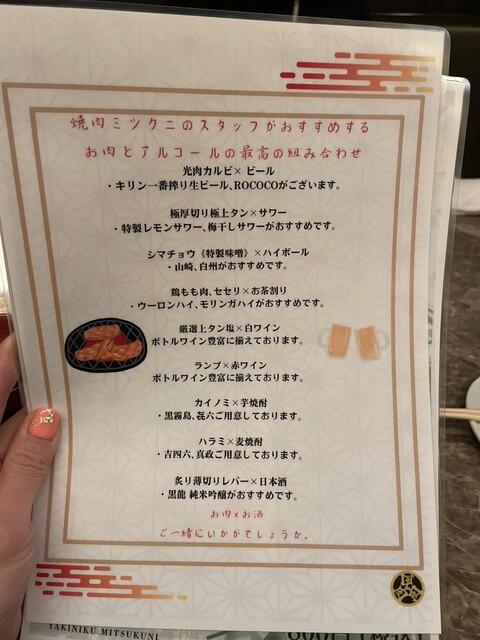 焼肉ミツクニのスタッフがおすすめする
お肉とアルコールの最高の組み合わせ
光肉カルビ×ビール
・キリン一番搾り生ビール、ROCOCOがございます。
極厚切り極上タン×サワー
・特製レモンサワー、梅干しサワーがおすすめです。
シマチョウ《特製味噌》×ハイボール
・山崎、白州がおすすめです。
鶏もも肉、セセリ×お茶割り
・ウーロンハイ、モリンガハイがおすすめです。
厳選上タン塩×白ワイン
ボトルワイン豊富に揃えております。
ランプ×赤ワイン
ボトルワイン豊富に揃えております。
カイノミ×芋焼酎
・黒霧島、㐂六ご用意しております。
ハラミ×麦焼酎
・吉四六、真政ご用意しております。
炙り薄切りレバー×日本酒
・黒龍 純米吟醸がおすすめです。
お肉×お酒
ご一緒にいかがでしょうか。
YAKINIKU MITSUKUNI